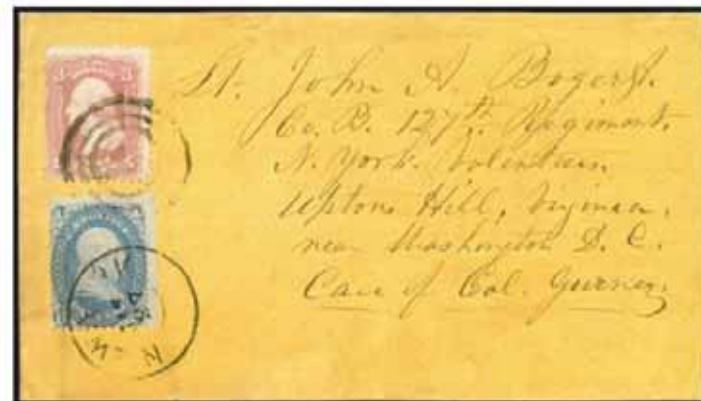 Lt. John A. Bogert.
Co. B. 127th. Regiment.
N. York. Volunteers.
Uptons Hill, Virginia,
near Washington D. C.
Care of Col. Gurney.
3 3
N Y